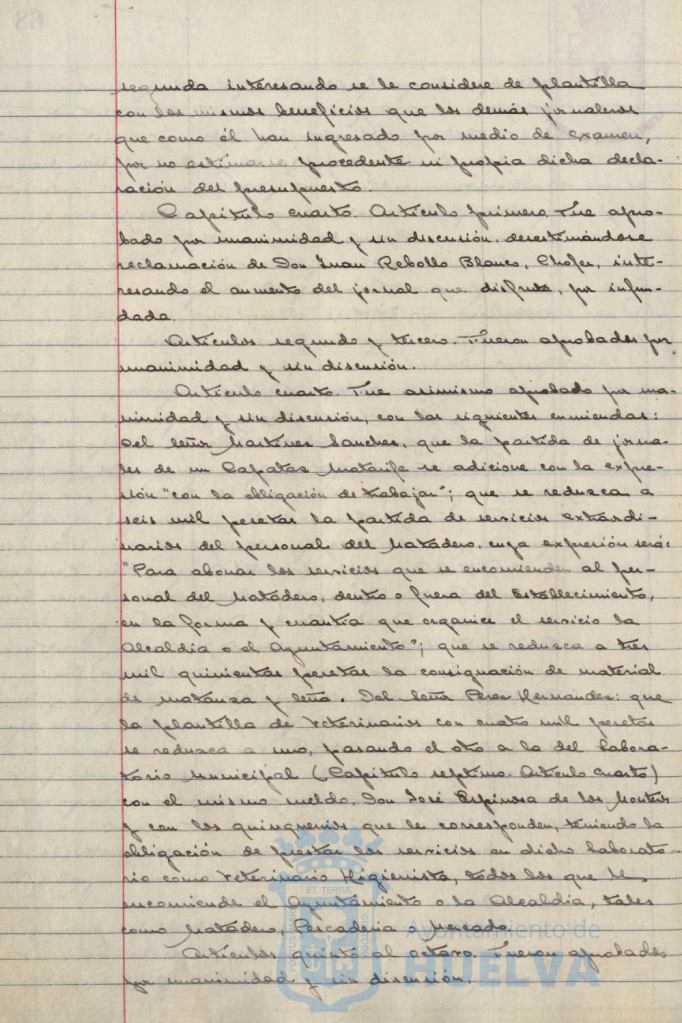 segunda interesando se le considere de plantilla
con los mismos beneficios que los demás jornaleros
que como él han ingresado por medio de examen,
por no estimarse procedente ni propia dicha decla-
ración del presupuesto.
Capítulo cuarto. Artículo primero. Fue apro-
bado por unanimidad y sin discusión, desestimándose
reclamación de Don Juan Rebollo Blanco, Chofer, inte-
resando el aumento del jornal que disfruta, por infun-
dada.
Artículos segundo y tercero. Fueron aprobados por
unanimidad y sin discusión.
Artículo cuarto. Fue asimismo aprobado por una-
nimidad y sin discusión, con las siguientes enmiendas:
Del señor Martinez Sanchez, que la partida de jorna-
les de un Capataz Matarife se adicione con la expre-
sión "con la obligación de trabajar"; que se reduzca a
seis mil pesetas la partida de servicios extraordi-
narios del personal del Matadero, cuya expresión será:
"Para abonar los servicios que se encomienden al per-
sonal del Matadero, dentro o fuera del Establecimiento,
en la forma y cuantía que organice el servicio la
Alcaldía o el Ayuntamiento"; que se reduzca a tres
mil quinientas pesetas la consignación de material
de matanza y leña. Del señor Perez Hernandez: que
la plantilla de Veterinarios con cuatro mil pesetas
se reduzca a uno, pasando el otro a la del Labora-
torio Municipal (Capítulo septimo. Artículo cuarto)
con el mismo sueldo, Don José Espinosa de los Monteros
y con los quinquenios que le corresponden, teniendo la
obligación de prestar los servicios en dicho Laborato-
rio como Veterinario Higienista, todos los que le
encomiende el Ayuntamiento o la Alcaldía, tales
como Matadero, Pescadería o Mercado.
Artículos quinto al octavo. Fueron aprobados
por unanimidad y sin discusión.
ET TERRA
Ayuntamiento de
HUELVA